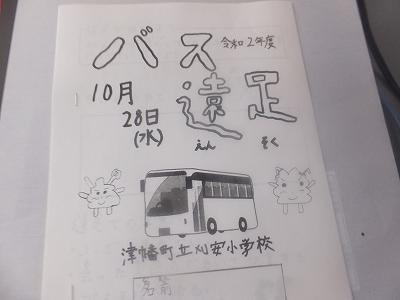 バス 令和2年度
遠足
えん そく
10月
28日
(水)
津幡町立刈安小学校
名前